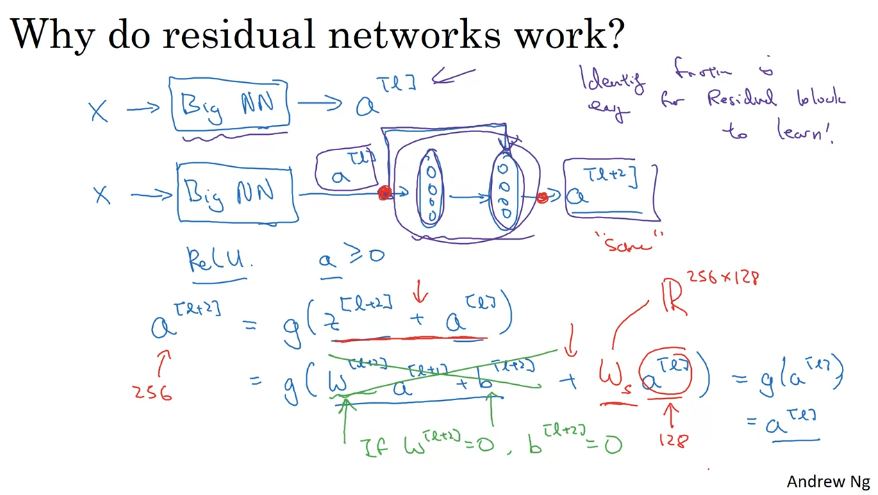 Why do residual networks work?
X → Big NN → a^[l]
Identity function is
easy for Residual block
to learn!
X → Big NN → a^[l] → → → a^[l+2]
"same"
ReLU. a ≥ 0
a^[l+2] = g(z^[l+2] + a^[l])
ℝ^256×128
256
= g(W^[l+2] a^[l+1] + b^[l+2] + W_s a^[l]) = g(a^[l])
= a^[l]
If W^[l+2]=0, b^[l+2]=0
128
Andrew Ng